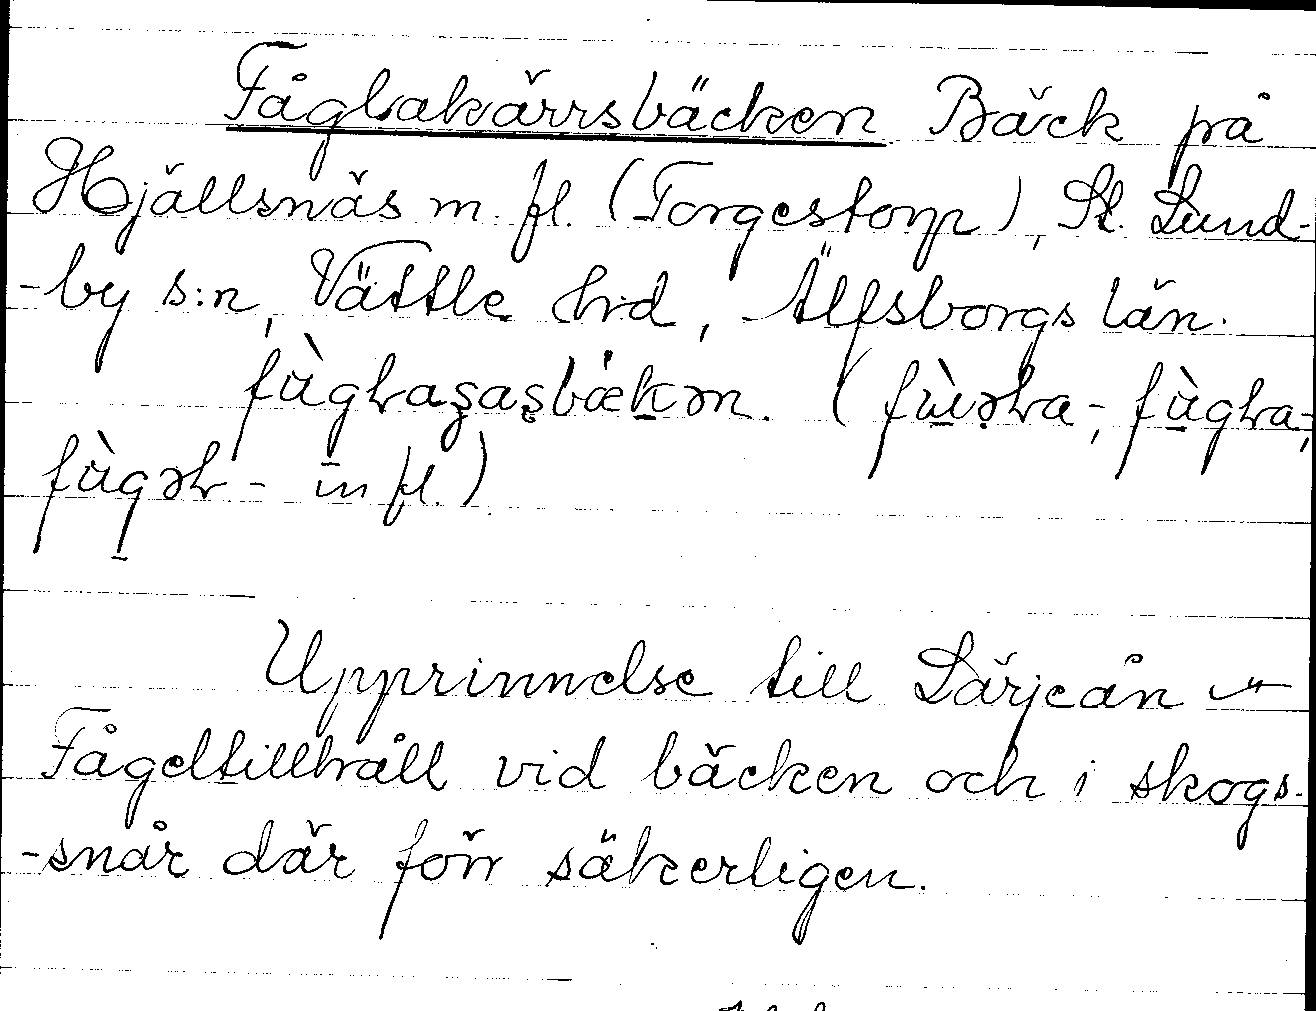 Fåglakärrsbäcken Bäck på
Hjällsnäs m. fl. (Torgestorp), St. Lund-
-by s:n, Vättle hd, Älfsborgs län.
m fl.)
Upprinnelse till Lärjeån
Fågeltillhåll vid bäcken och i skogs-
-snår där förr säkerligen.